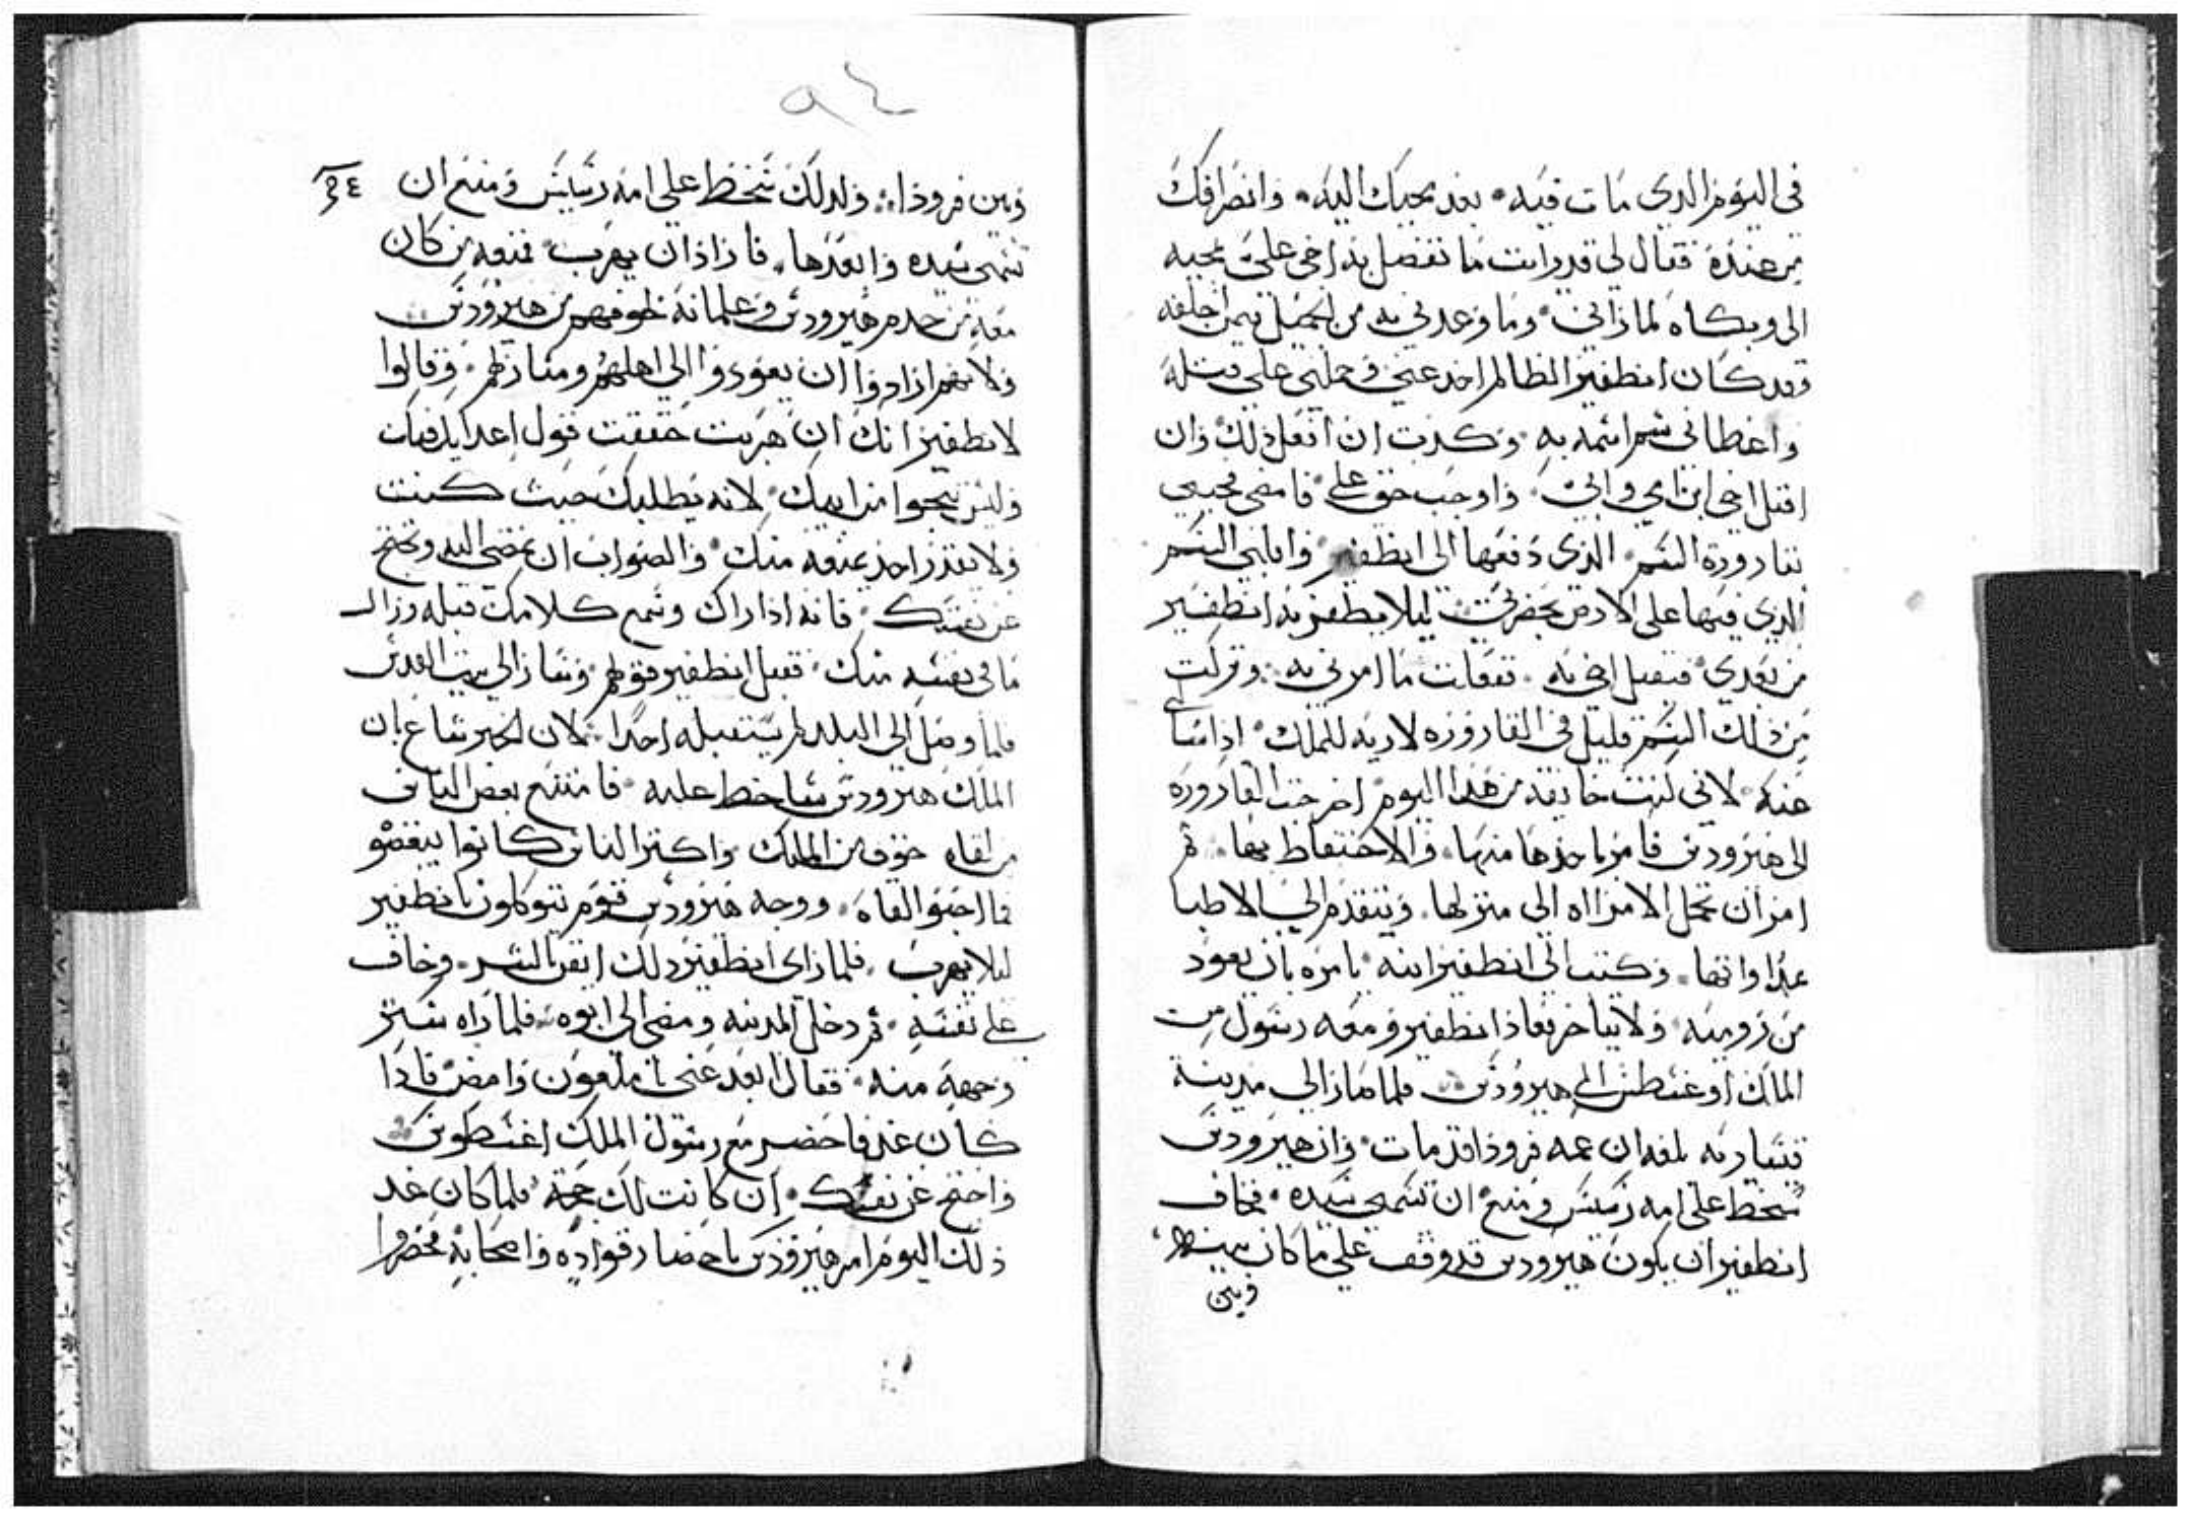 في اليوم الدي مات فيه بعد مجيك اليه وانصرافك
من عنده فقال لي قد رايت ما تفضل به اخي علي بمجيه
الي وبكاه لما راني وما وعدني به من الجميل فيمن اخلفه
وقد كان انطفير الظالم اخدعني وحملني علي قتله
واعطاني سم اسمه به وكدت ان افعل ذلك وان
اقتل اخي ابن امي وابي واوجب حق علي فامضي فجيبي
بقارورة السم الذي دفعها الي انطفير واقلبي السم
الدي فيها على الارض بحضرتي ليلا يظفر به انطفير
من بعدي فيقتل اخي به ففعلت ما امرني به وتركت
من ذلك السم قليل في القاروره لاريه للملك اذا سأل
عنه لاني كنت خايفه من هذا اليوم اخرجت القاروره
الى هيرودس فامر باخذها منها والاحتفاظ بها ثم
امر ان تحمل الامراه الي منزلها ويتقدم الي الاطبا
بمداواتها وكتب الي انطفير ابنه يامره بان يعود
من روميه ولا يتاخر فعاد انطفير ومعه رسول من
الملك اوغسطس الي هيرودس فلما صار الي مدينة
قيساريه بلغه ان عمه فرودا قد مات وان هيرودس
سخط على امه رسيس ومنع ان تسمي سيده فخاف
انطفير ان يكون هيرودس قد وقف علي ما كان بينه
وبين
٩٤
٣٤
وبين فرودا ولدلك سخط علي امه رسيس ومنع ان
تسمى سيده وابعدها فاراد ان يهرب فمنعه من كان
معه من خدم هيرودس وغلمانه لخوفهم من هيرودس
ولانهم ارادوا ان يعودوا الي اهلهم ومنازلهم وقالوا
لانطفير انك ان هربت حققت قول اعدايك فيك
وليس تنجوا من ابيك لانه يطلبك حيث كنت
ولا يقدر احد يمنعه منك والصواب ان تمضي اليه وتحتج
عن نفسك فانه اذا راك وسمع كلامك قبله وزال
ما في نفسه منك فقبل انطفير قولهم وسار الي بيت القدس
فلما وصل الي البلد لم يستقبله احدا لان الخبر شاع بان
الملك هيرودس ساخط عليه فامتنع بعض الناس
من لقاه خوف من الملك واكتر الناس كانوا يبغضو
فما احبوا لقاه ووجه هيرودس قوم يتوكلون بانطفير
ليلا يهرب فلما راى انطفير دلك ايقن بالشر وخاف
علي نفسه ثم دخل المدينه ومضى الى ابوه فلما راه ستر
وجهه منه فقال ابعد عني يا ملعون وامض فادا
كان غد فاحضر مع رسول الملك اغسطوس
واحتج عن نفسك ان كانت لك حجة فلما كان غد
ذلك اليوم امر هيرودس باحضار قواده واصحابه فحضروا